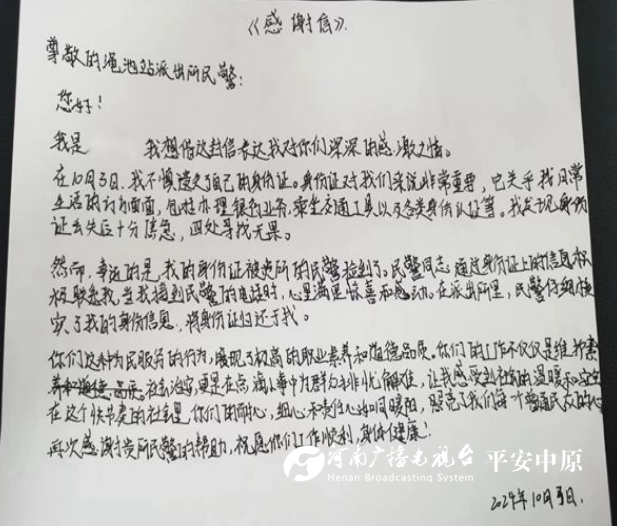 《感谢信》.
尊敬的渑池站派出所民警：
您好！
我是 我想借这封信表达我对你们深深的感激之情。
在10月3日，我不慎遗失了自己的身份证。身份证对我们来说非常重要，它关乎我日常
生活的方方面面，包括办理银行业务，乘坐交通工具以及各类身份认证等。我发现身份
证丢失后十分焦急，四处寻找无果。
然而，幸运的是，我的身份证被贵所的民警捡到了。民警同志通过身份证上的信息积
极联系我，当我接到民警的电话时，心里满是惊喜和感动。在派出所里，民警仔细核
实了我的身份信息，将身份证归还于我。
你们这种为民服务的行为，展现了极高的职业素养和道德品质。你们的工作不仅仅是维护
社会治安，更是在点滴小事中为群众排忧解难，让我感受到社会的温暖和安全
在这个快节奏的社会里，你们的耐心，细心和责任心如同暖阳，照亮了我们每个普通民众的心
再次感谢贵所民警的帮助，祝愿你们工作顺利，身体健康！
2024年10月3日.
河南广播电视台 平安中原
Henan Broadcasting System